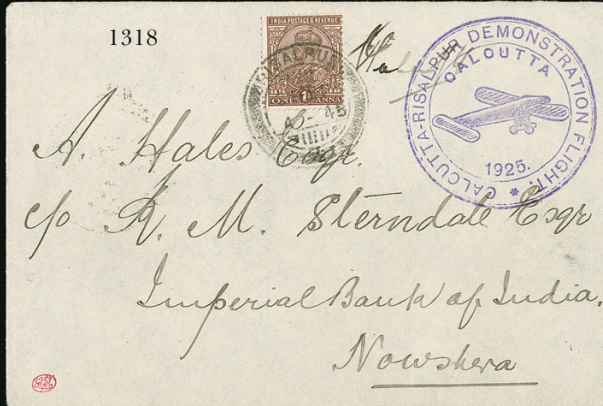 1318
INDIA POSTAGE & REVENUE
ONE 1A ANNA
CALCUTTA-RISALPUR DEMONSTRATION FLIGHT.
CALCUTTA
1925.
A. Hales Esqr.
c/o R. M. Sterndale Esqr
Imperial Bank of India,
Nowshera